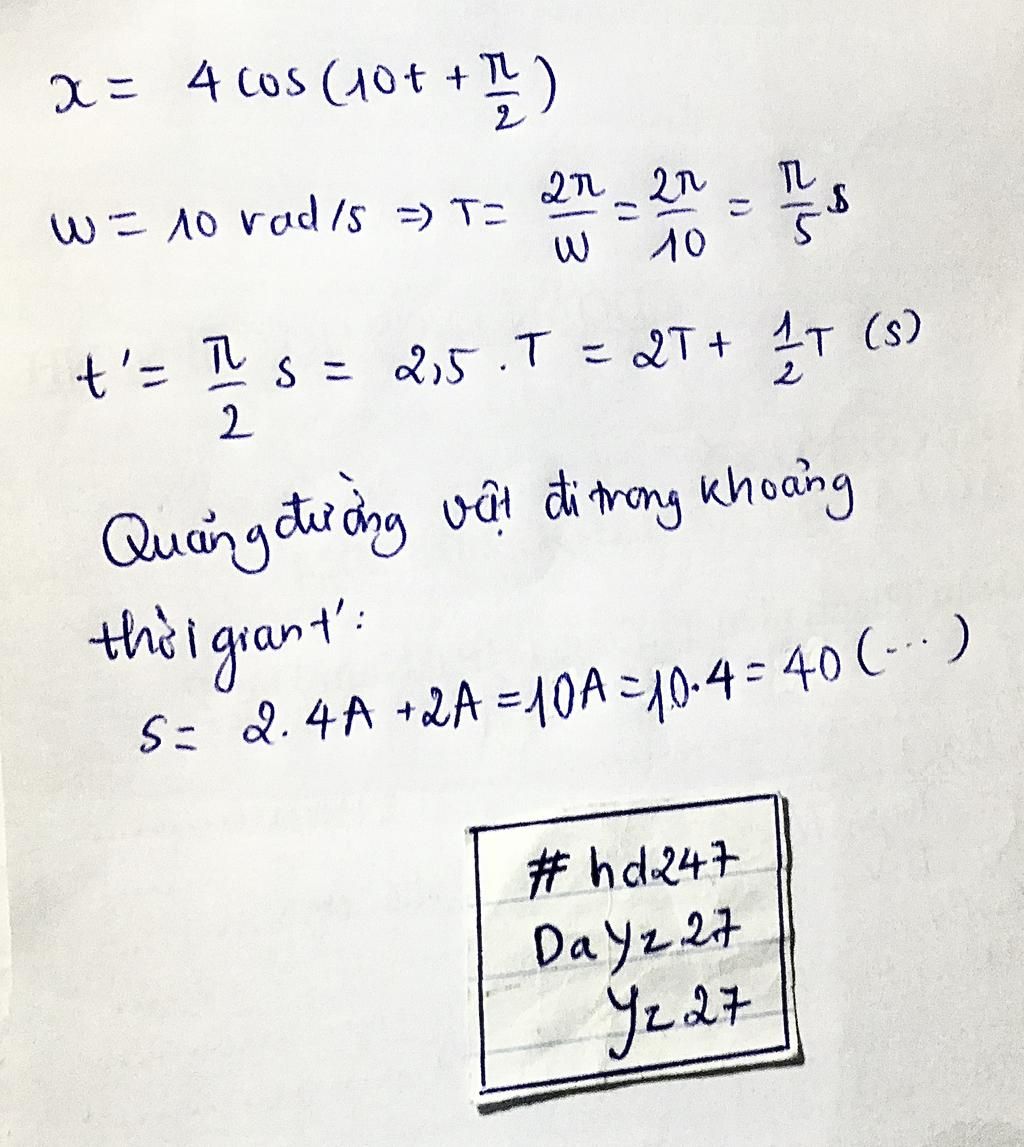 x = 4 cos(10t + π/2)
w = 10 rad/s => T = 2π/w = 2π/10 = π/5 s
t' = π/2 s = 2,5 . T = 2T + 1/2 T (s)
Quảng đường vật đi trong khoảng
thời gian t':
S = 2. 4A + 2A = 10A = 10.4 = 40 (...)
# hd247
Da yz 27
yz 27